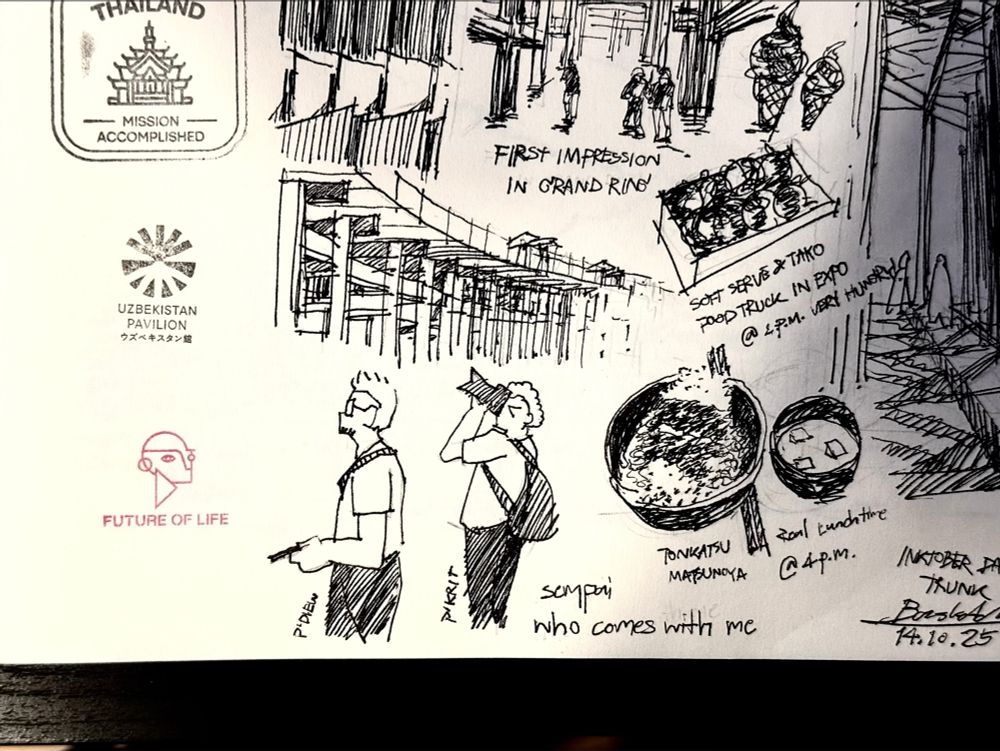 THAILAND
MISSION
ACCOMPLISHED
UZBEKISTAN
PAVILION
ウズベキスタン館
FUTURE OF LIFE
FIRST IMPRESSION
IN GRAND RING
SOFT SERVE & TAKO
FOOD TRUCK IN EXPO
@ 2 P.M. VERY HUNGRY!
TONKATSU
MATSUNOYA
Real Lunchtime
@ 4 p.m.
P'DIEW
P'KRIT
sempai
who comes with me
INKTOBER DA
TRUNK
14.10.25